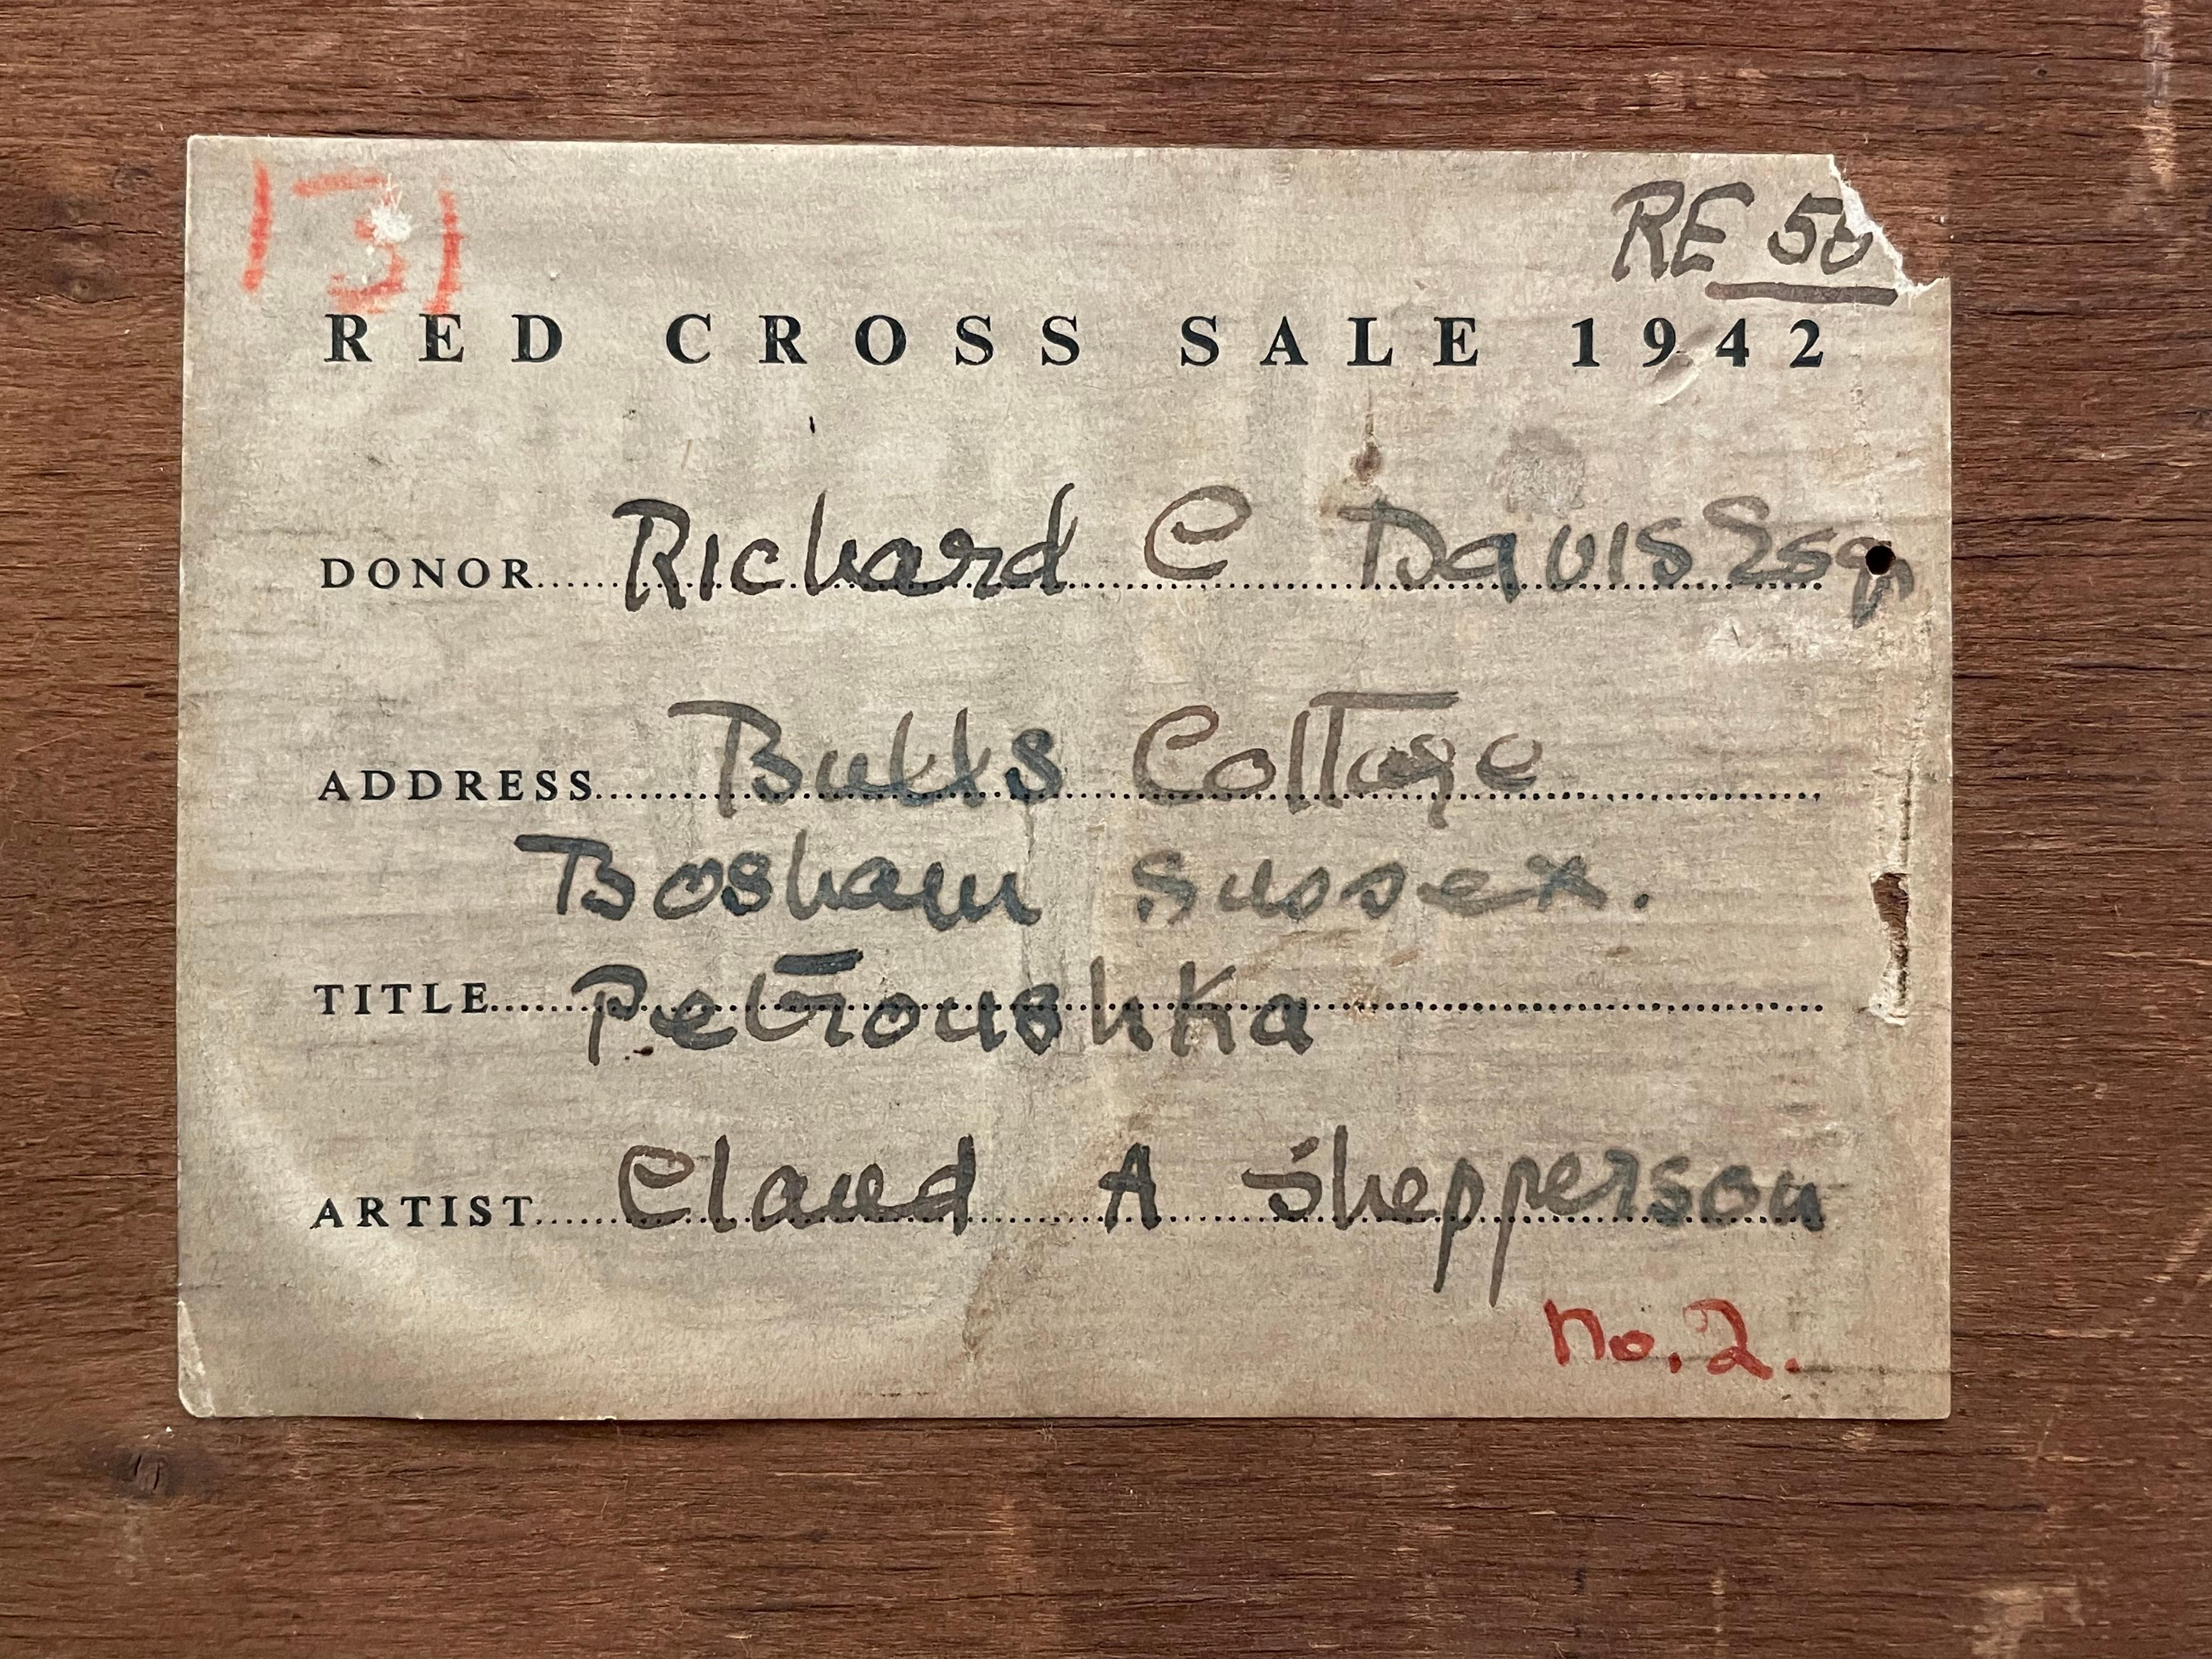 131
RE 56
RED CROSS SALE 1942
DONOR Richard C Davis Esq.
ADDRESS Butts Cottage
Bosham Sussex.
TITLE Petroushka
ARTIST Claud A Shepperson
No. 2.